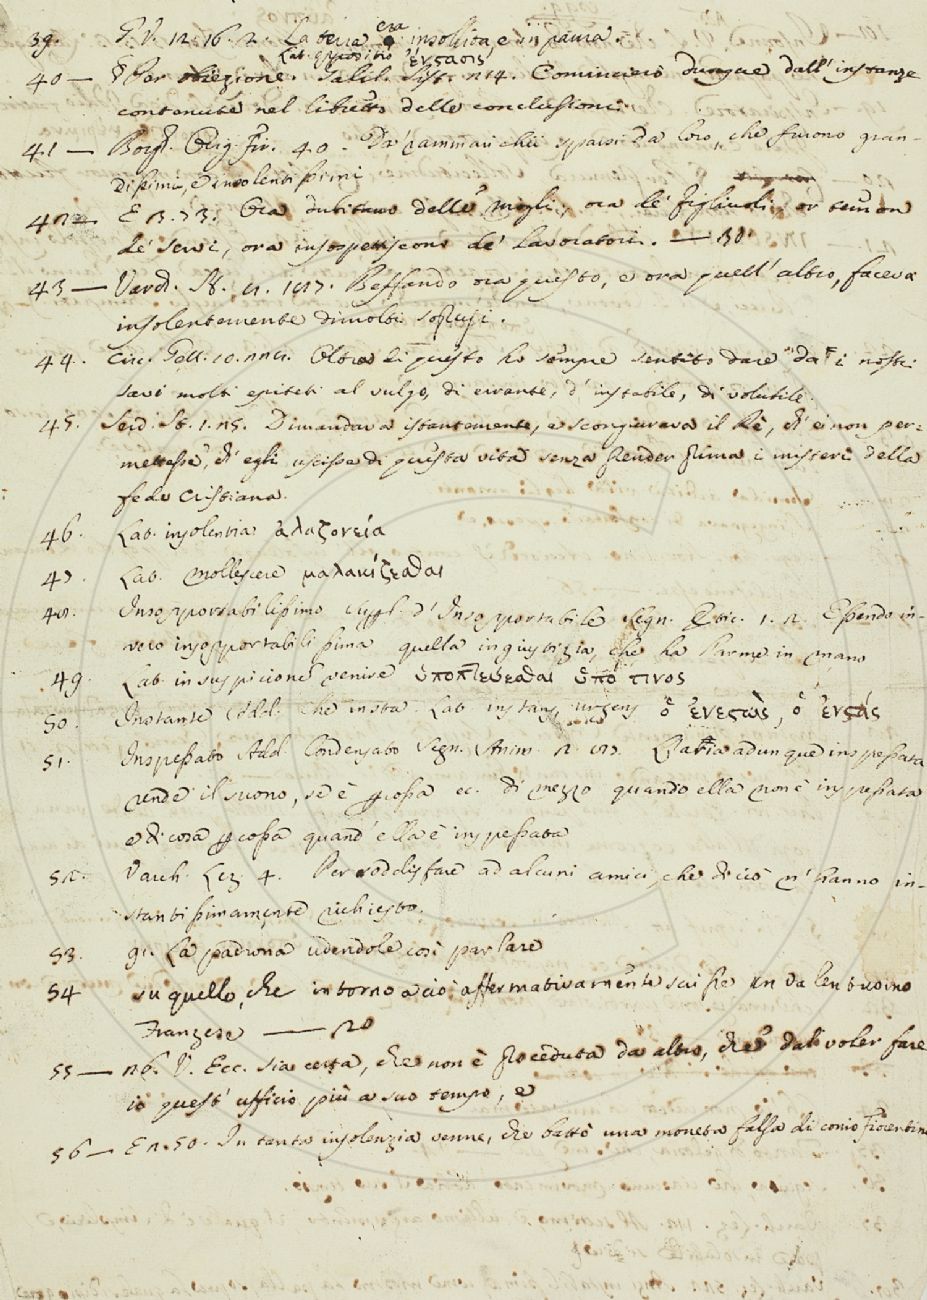 39. G. V. 12. 16. 2. La terra era insollita, e in paura.
Lat. quaesitio ἔνστασις
40 — § Per obiezione. Galil. Sist. 114. Comincerò dunque dall'instanze
contenute nel libretto delle conclusioni.
41 — Borgh. Orig. Fir. 40. Da' rammarichii sparsi da loro, che furono gran-
dissimi, ed insolentissimi
42 — E 13. 73. Ora dubitano delle mogli, ora de' figliuoli, or temon
de' servi, ora insospettiscono de' lavoratori. — 30
43 — Varch. St. Beffando ora questo, e ora quell'altro, faceva
insolentemente dimolti soprusi.
44. Circ. Gell. 10. Oltra di questo ho sempre sentito dare da i nostri
savi molti epiteti al vulgo, di errante, d'instabile, di volubile.
45. Serd. St. 1. Dimandava istantemente, e scongiurava il Rè, ch'ei non per-
mettesse, ch'egli uscisse di questa vita senza prender prima i misteri della
fede cristiana.
46. Lat. insolentia ἀλαζονεία
47. Lat. mollescere μαλακίζεσθαι
48. Insopportabilissimo suppl. d'Insopportabile Segn. Etic. 1. 2. Essendo in-
vero insopportabilissima quella ingiustizia, che ha l'arme in mano
49. Lat. in suspicionem venire ὑποπτεύεσθαι ὑπό τινος
50. Instante Add. Che insta. Lat. instans, urgens ὁ ἐνεστώς, ὁ ἐνστάς
51. Inspessato Add. Condensato Segn. Anim. 2. L'aria adunque inspessata
rende il suono, se è percossa ec. di mezzo quando ella non è inspessata
e di cosa percossa quand'ella è inspessata
52. Varch. Lez. 4. Per soddisfare ad alcuni amici, che di ciò n'hanno in-
stantissimamente richiesto.
53. 91. La padrona udendole così parlare
54 su quello, che intorno a ciò affermativamente scrisse un valentuomo
Franzese — 20
55 — 26. V. Ecc. sia certa, che non è proceduta da altro, che dal voler fare
io quest'ufficio più a suo tempo, e
56 — E 2. 50. In tanta insolenzia venne, che battè una moneta falsa di conio Fiorentino